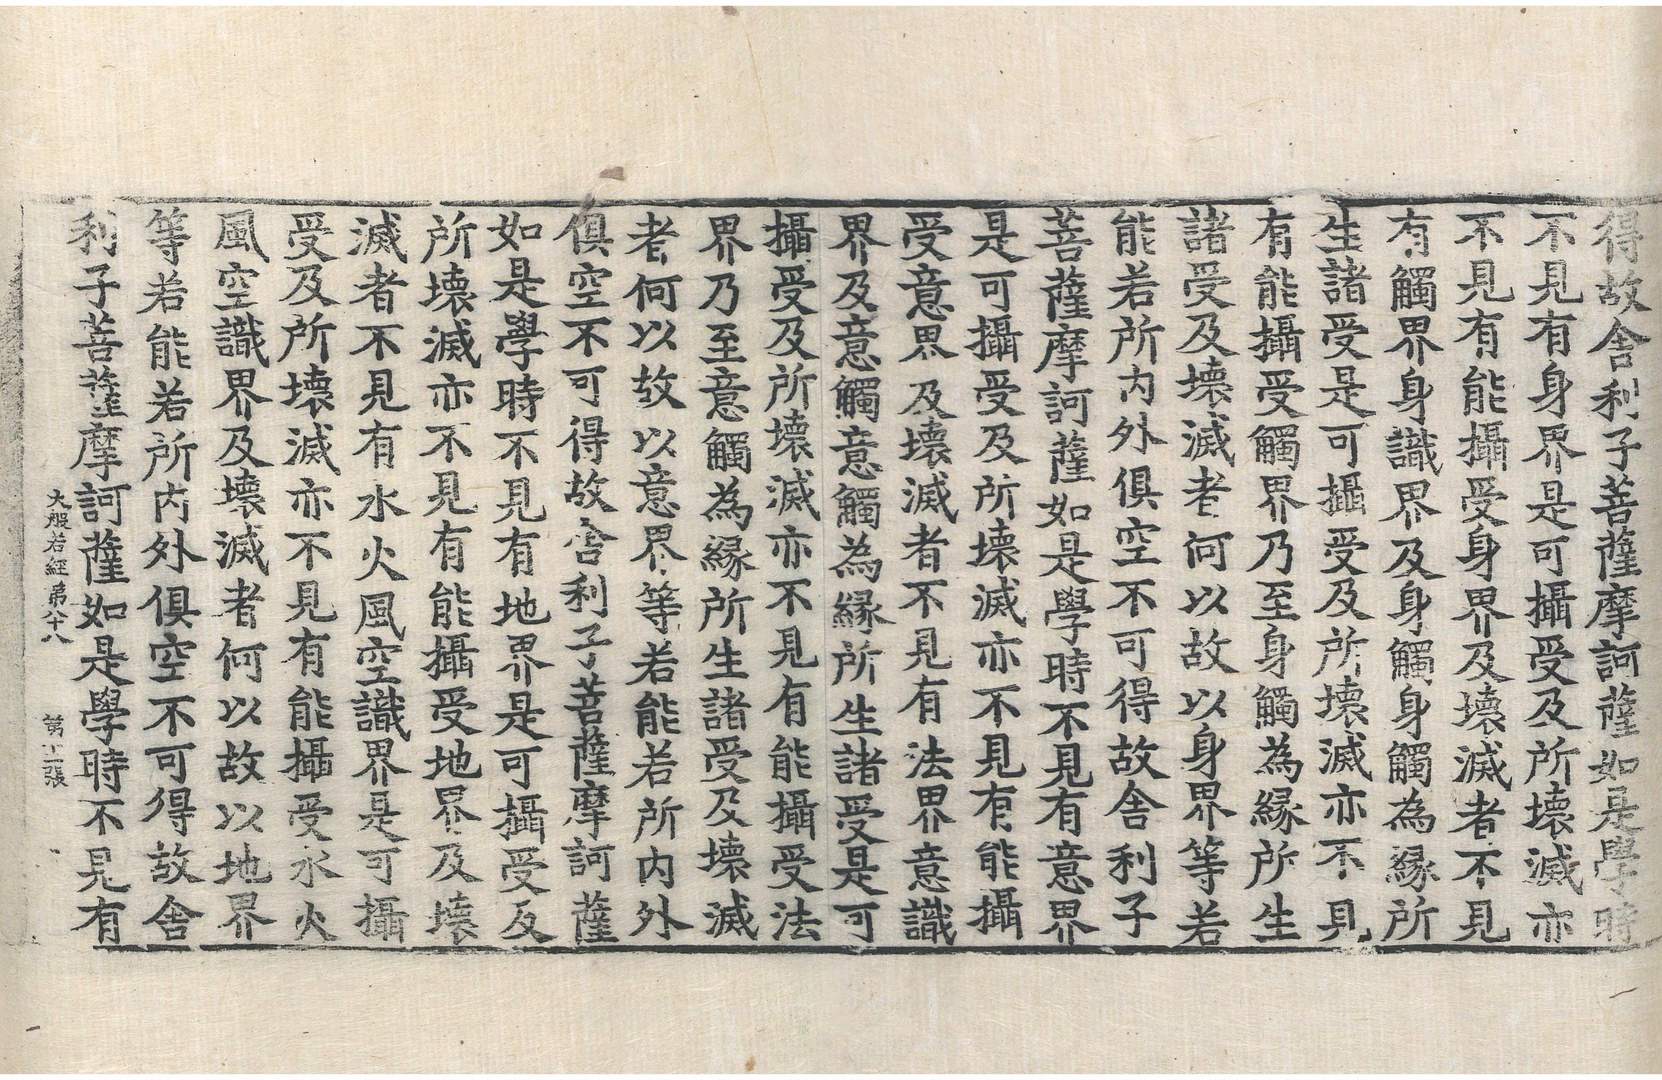 得故舍利子菩薩摩訶薩如是學時
不見有身界是可攝受及所壞滅亦
不見有能攝受身界及壞滅者不見
有觸界身識界及身觸身觸為緣所
生諸受是可攝受及所壞滅亦不見
有能攝受觸界乃至身觸為緣所生
諸受及壞滅者何以故以身界等若
能若所内外俱空不可得故舍利子
菩薩摩訶薩如是學時不見有意界
是可攝受及所壞滅亦不見有能攝
受意界及壞滅者不見有法界意識
界及意觸意觸為緣所生諸受是可
攝受及所壞滅亦不見有能攝受法
界乃至意觸為緣所生諸受及壞滅
者何以故以意界等若能若所内外
俱空不可得故舍利子菩薩摩訶薩
如是學時不見有地界是可攝受及
所壞滅亦不見有能攝受地界及壞
滅者不見有水火風空識界是可攝
受及所壞滅亦不見有能攝受水火
風空識界及壞滅者何以故以地界
等若能若所内外俱空不可得故舍
利子菩薩摩訶薩如是學時不見有
大般若經第八十八 第十二張